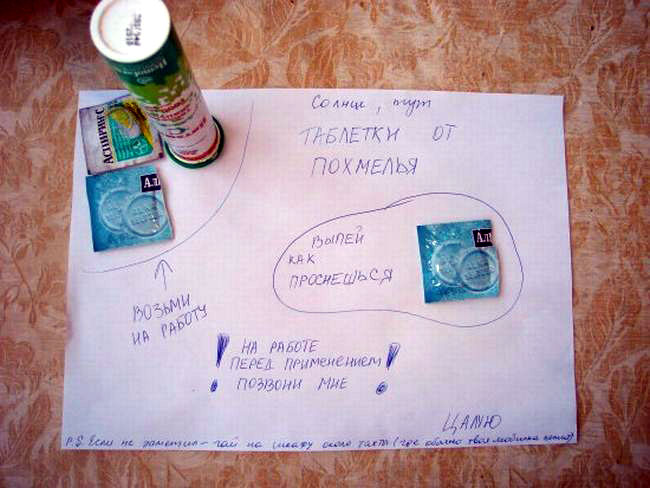 Солнце, тут
ТАБЛЕТКИ ОТ
ПОХМЕЛЬЯ
АСПИРИН С
Ал
ВЫПЕЙ
КАК
ПРОСНЕШЬСЯ
Ал
ВОЗЬМИ
НА РАБОТУ
! НА РАБОТЕ !
ПЕРЕД ПРИМЕНЕНИЕМ
ПОЗВОНИ МНЕ
ЦАЛУЮ
P.S. Если не заметил - чай на шкафу около тахты (где обычно твоя мобилка лежит)